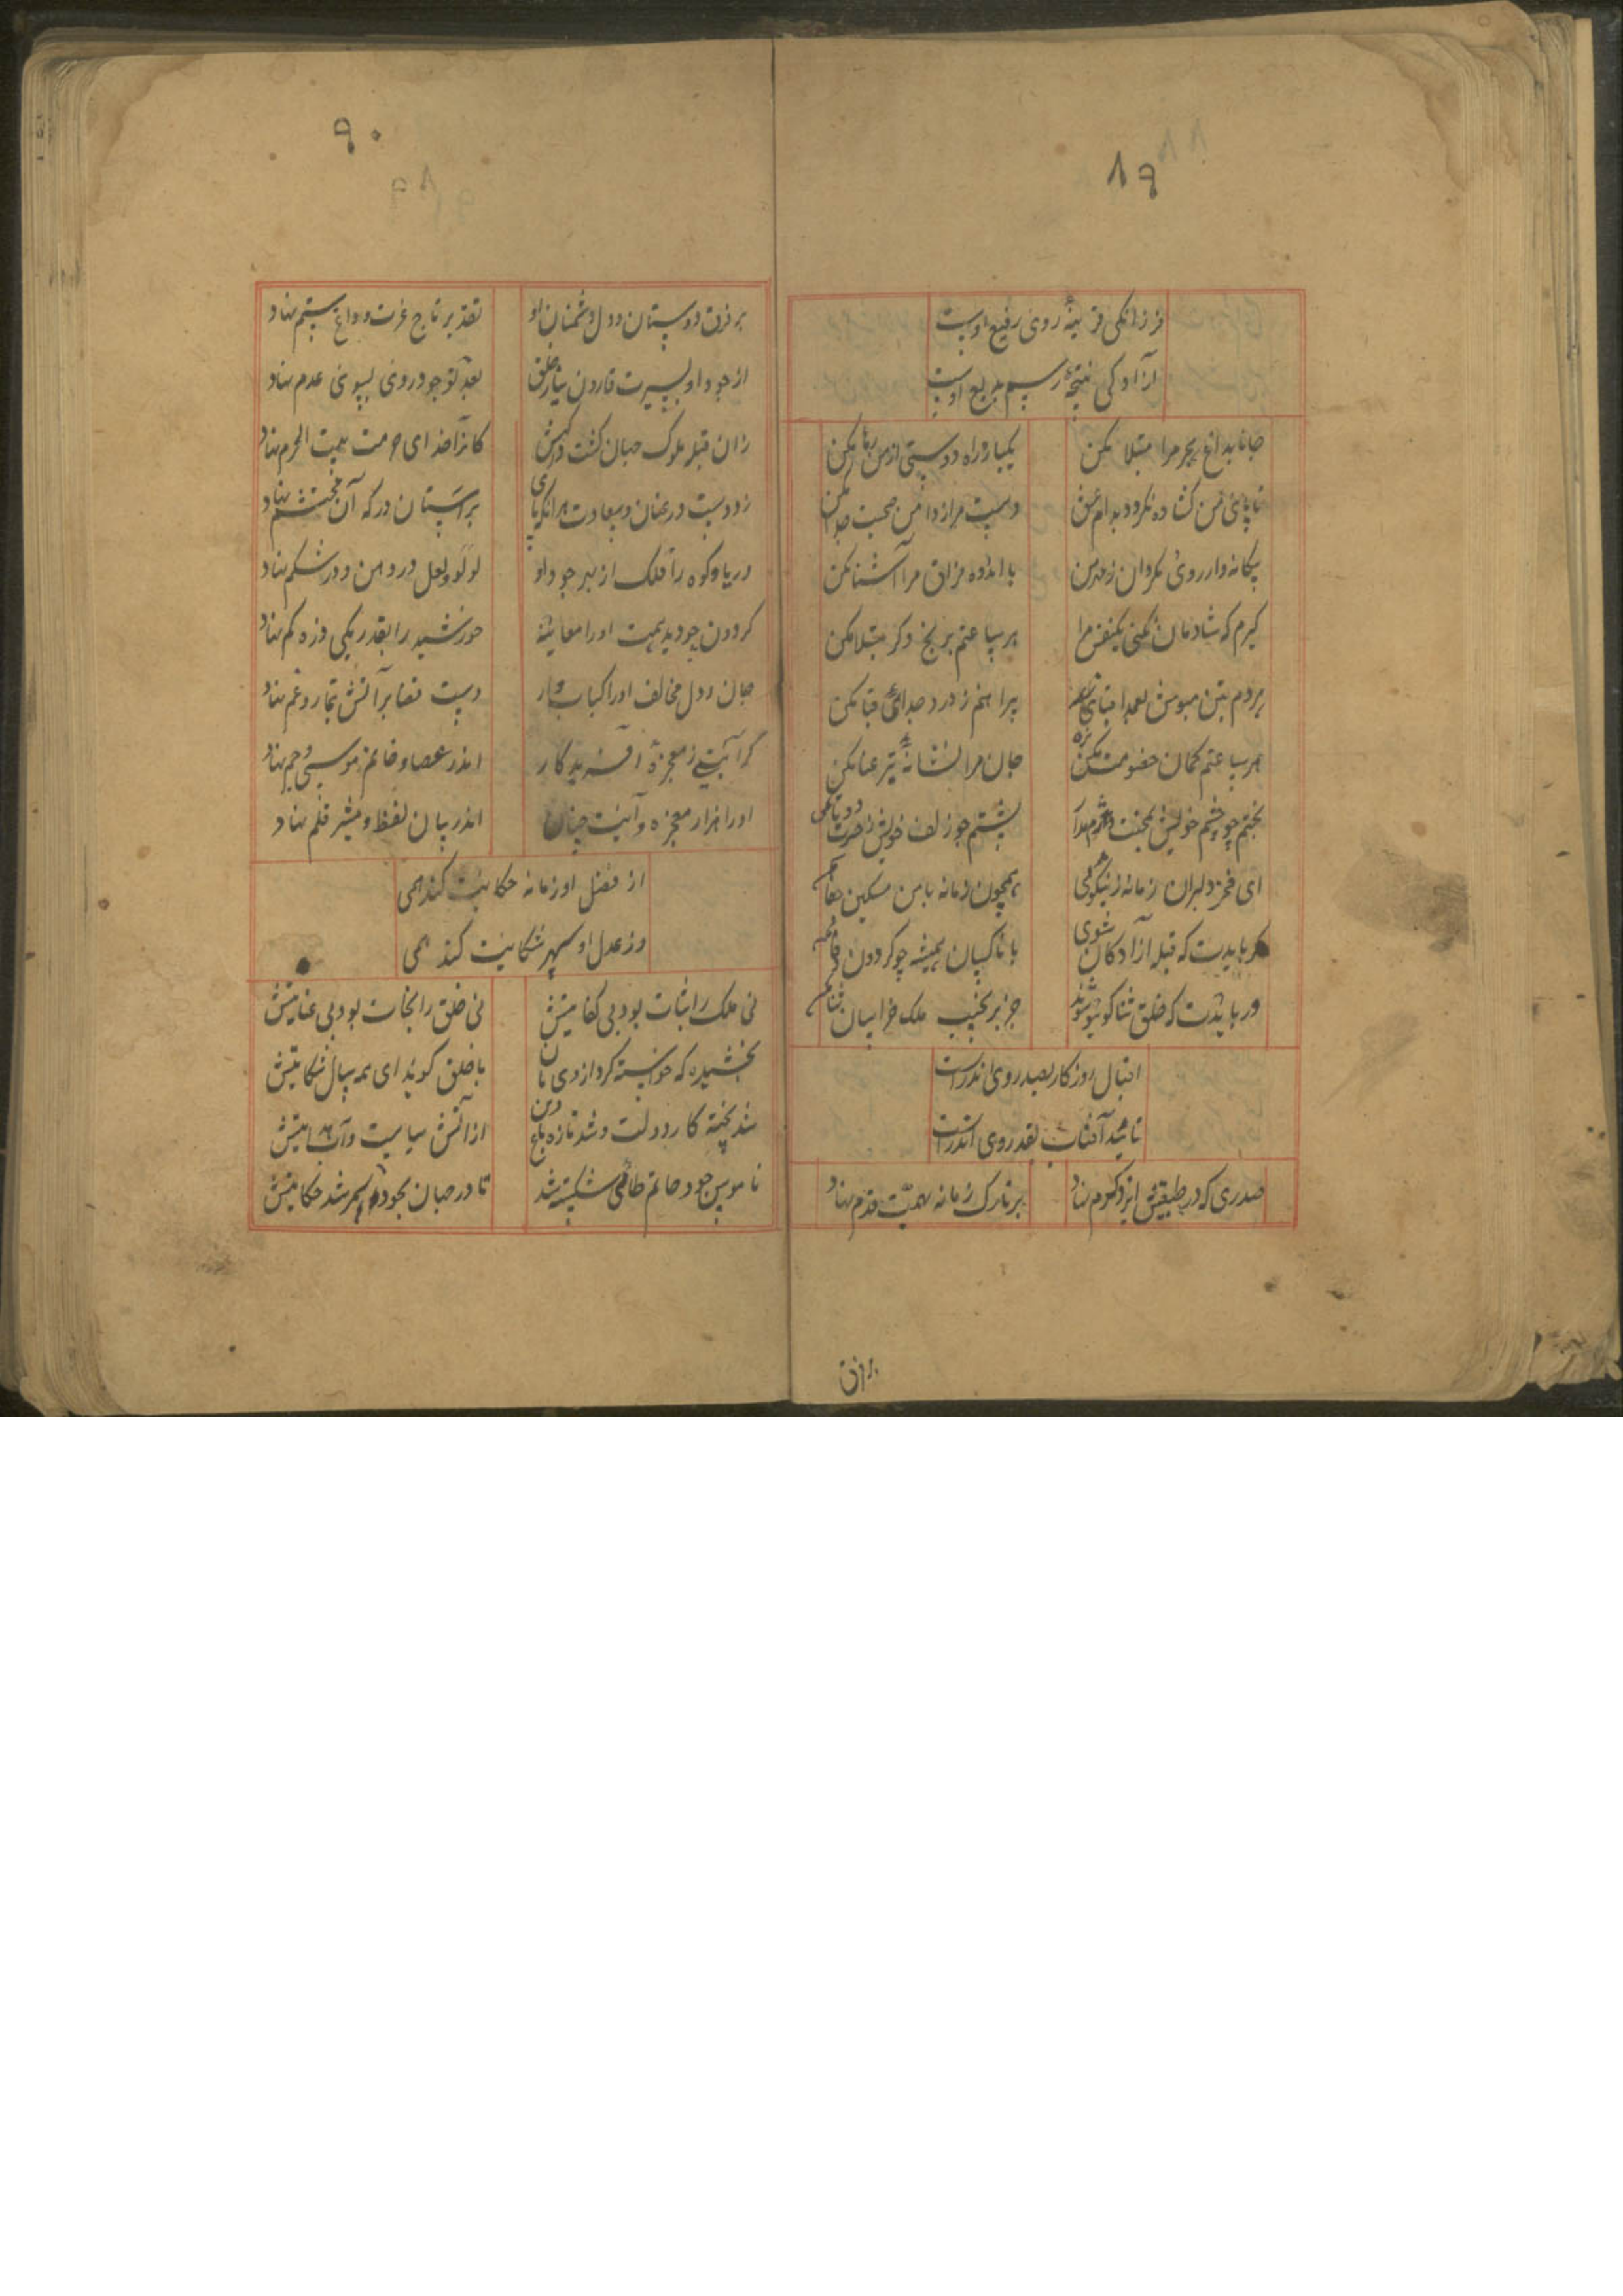 ۸۹
فرزانکی قرینهٔ روی رفیع اوست
آزادکی نتیجهٔ رسم بدیع اوست
جانا بداغ هجر مرا مبتلا مکن
یکباره راه دوستی از من رها مکن
تا پای من کشاده نکردد بدام عشق
دست مرا ز دامن صحبت جدا مکن
بیکانه وار روی مکردان ز مهر من
با اندوه فراق مرا آشنا مکن
کیرم که شادمان نکنی یکنفس مرا
هر ساعتم برنج دکر مبتلا مکن
بر دم بتن مپوش بعمدا قبای
پیراهنم ز درد جدائی قبا مکن
هر ساعتم کمان خصومت مکن بزه
جان مرا نشانهٔ تیر عنا مکن
بختم چو چشم خویش بمحنت دژم مدار
پشتم چو زلف خویش ز حسرت دوتا مکن
ای فخر دلبران زمانه ز نیکوئی
همچون زمانه با من مسکین جفا مکن
کر بایدت که قبله آزادکان شوی
با ناکسان همیشه چو کردون وفا مکن
ور بایدت که خلق ثناکوی تو شوند
جز بر نجیب ملک خراسان ثنا مکن
اقبال روزکار بصدر وی اندرست
تائید آفتاب بقدر وی اندرست
صدری که در طبیعتش ایزد کرم نهاد
بر تارک زمانه بهمت قدم نهاد
بر فرق
۹۰
بر فرق دوستان و دل دشمنان او
تقدیر تاج عزت و داغ ستم نهاد
از جود او بسیرت قارون نیاز خلق
بعد از وجود روی بسوی عدم نهاد
زان قبله ملوک جهان کشت درکهش
کانرا خدای حرمت بیت الحرم نهاد
زد دست در عنان سعادت هر انک پای
بر آستان درکه آن محتشم نهاد
دریا و کوه را فلک از بهر جود او
لولو و لعل در دهن و در شکم نهاد
کردون چو دید همت او را معاینه
خورشید را بقدر یکی ذره کم نهاد
جان و دل مخالف او را کباب وار
دست قضا بر آتش تیمار و غم نهاد
کر آیتی ز معجزه آفریدکار
اندر عصا و خاتم موسی و جم نهاد
او را هزار معجزه و آیت چنان
اندر بیان لفظ و قلم نهاد
از فضل او زمانه حکایت کند همی
وز عدل او سپهر شکایت کند همی
نی ملک را ثبات بود بی کفایتش
نی خلق را نجات بود بی عنایتش
بخشیده که خواسته کرد از وی
با خلق کوید ای همه سال شکایتش
شد پخته کار دولت و شد تازه باغ دین
از آتش سیاست و آب
ناموس جود حاتم طائی شکسته شد
تا در جهان بجود سمر شد حکایتش